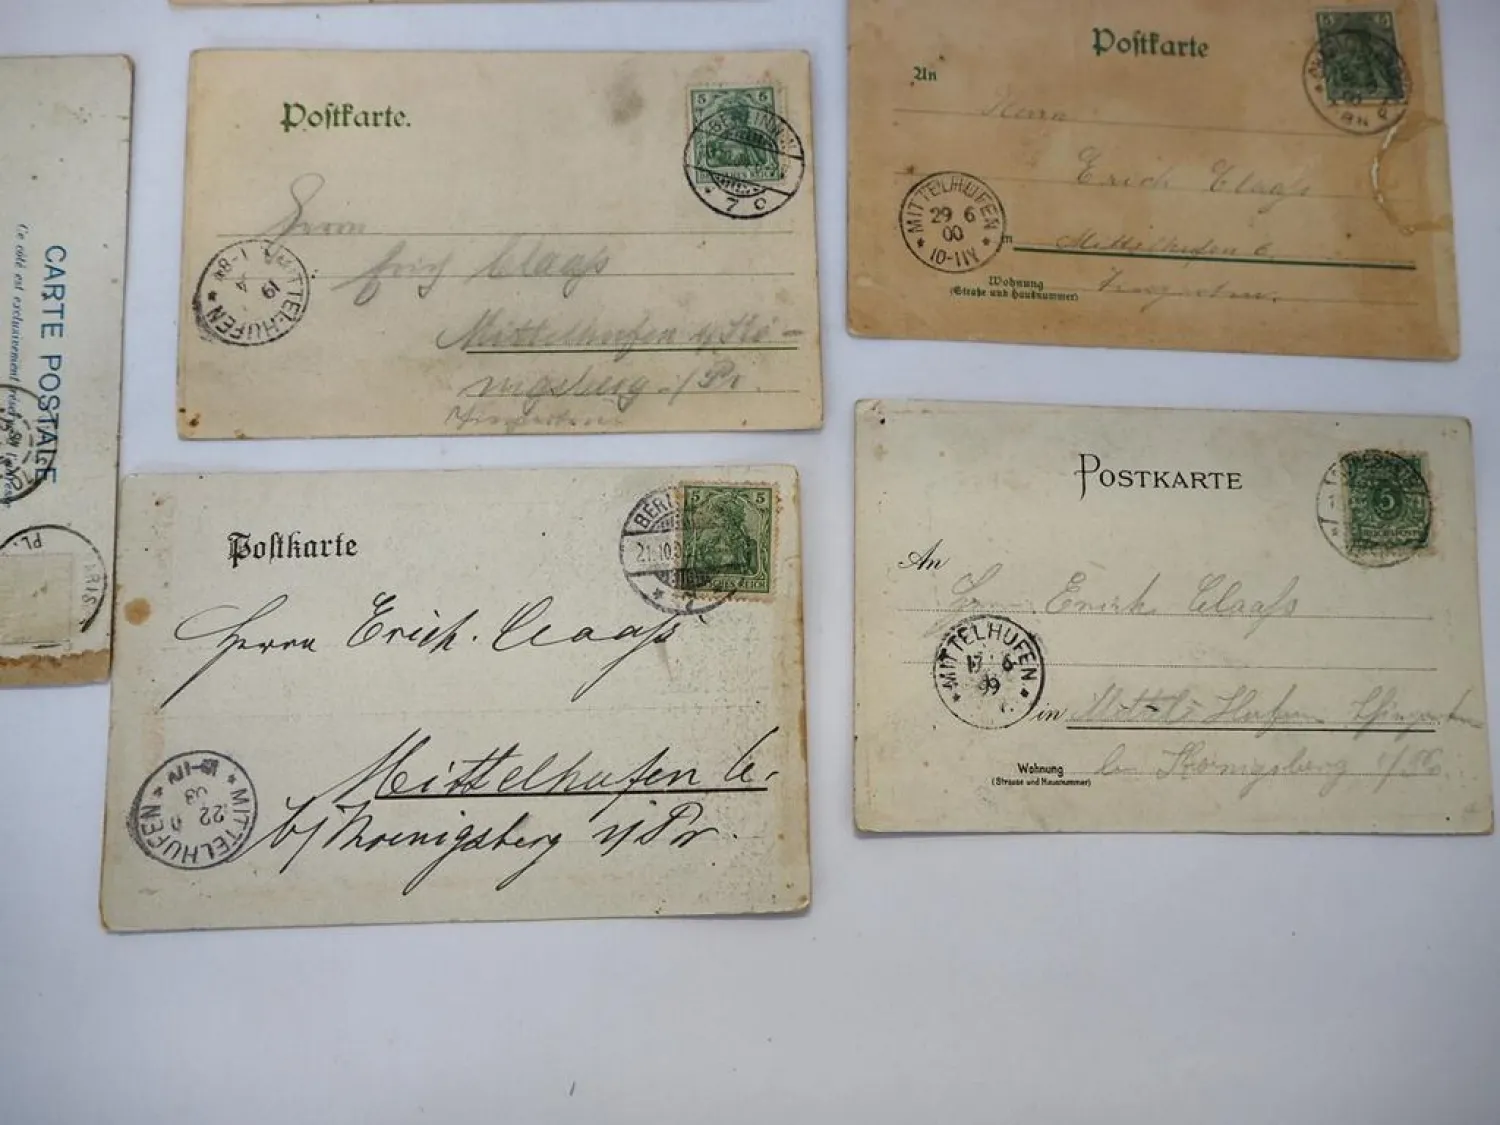 CARTE POSTALE
Ce côté est exclusivement réservé
PL.
PARIS
Postkarte.
5 5
BERLIN N.W.
DEUTSCHES REICH
7 c
Herrn
Erich Claaß
Mittelhufen b/Kö-
nigsberg i/Pr.
MITTELHUFEN
19 4
7-8N
Postkarte
An
5 5
Herrn
Erich Claaß
MITTELHUFEN
29 6
00
10-11V
Mittelhufen b.
Wohnung
(Straße und Hausnummer)
Postkarte
5 5
BERLIN
21.10.
DEUTSCHES REICH
Herrn Erich Claaß
Mittelhufen b.
b/Koenigsberg i/Pr.
MITTELHUFEN
22
03
POSTKARTE
5
REICHSPOST
An
Herrn Erich Claaß
MITTELHUFEN
17 6
99
in Mittel Hufen
bei Königsberg i/Pr.
Wohnung
(Strasse und Hausnummer)